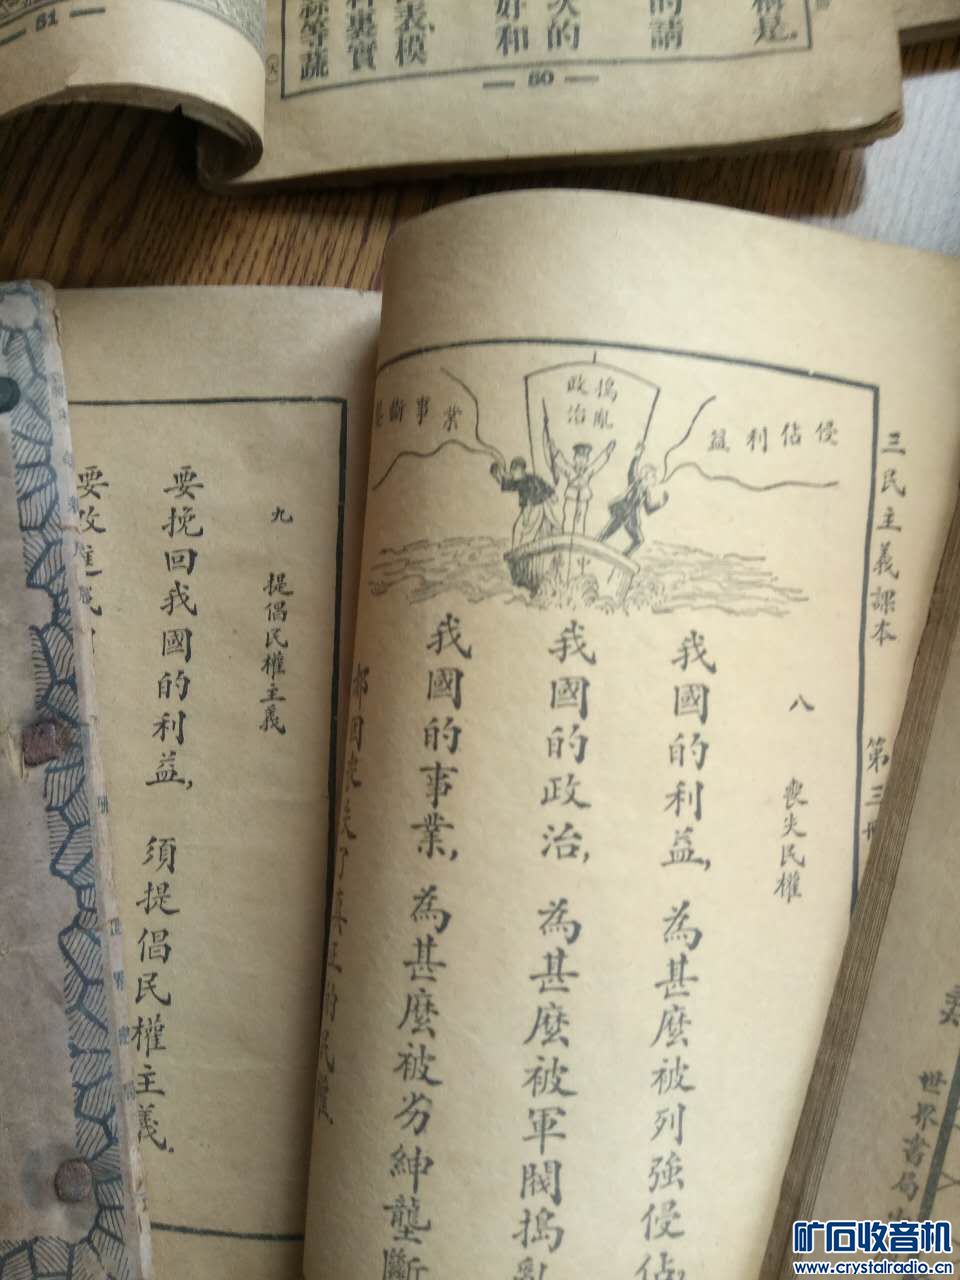 的請
次的
好和
表模
料裏實
蒜等蔬
(大)
— 50 —
— 51 —
三民主義課本
第三冊
八 喪失民權
侵佔利益
搗亂
政治
斷事業
中華
我國的利益,為甚麼被列強侵佔
我國的政治,為甚麼被軍閥搗亂
我國的事業,為甚麼被劣紳壟斷
九 提倡民權主義
要挽回我國的利益, 須提倡民權主義.
世界書局
矿石收音机
www.crystalradio.cn